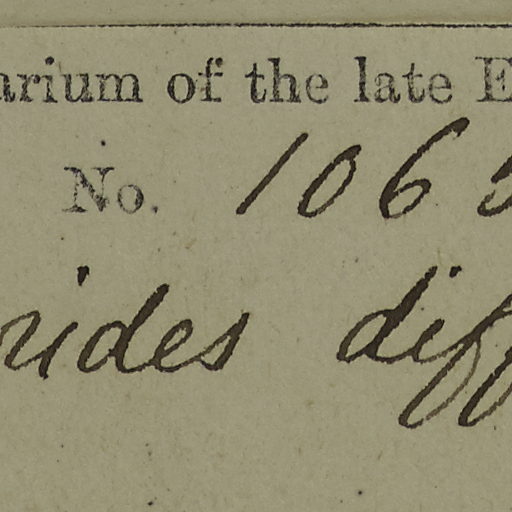 arium of the late E
No. 106
rides diff